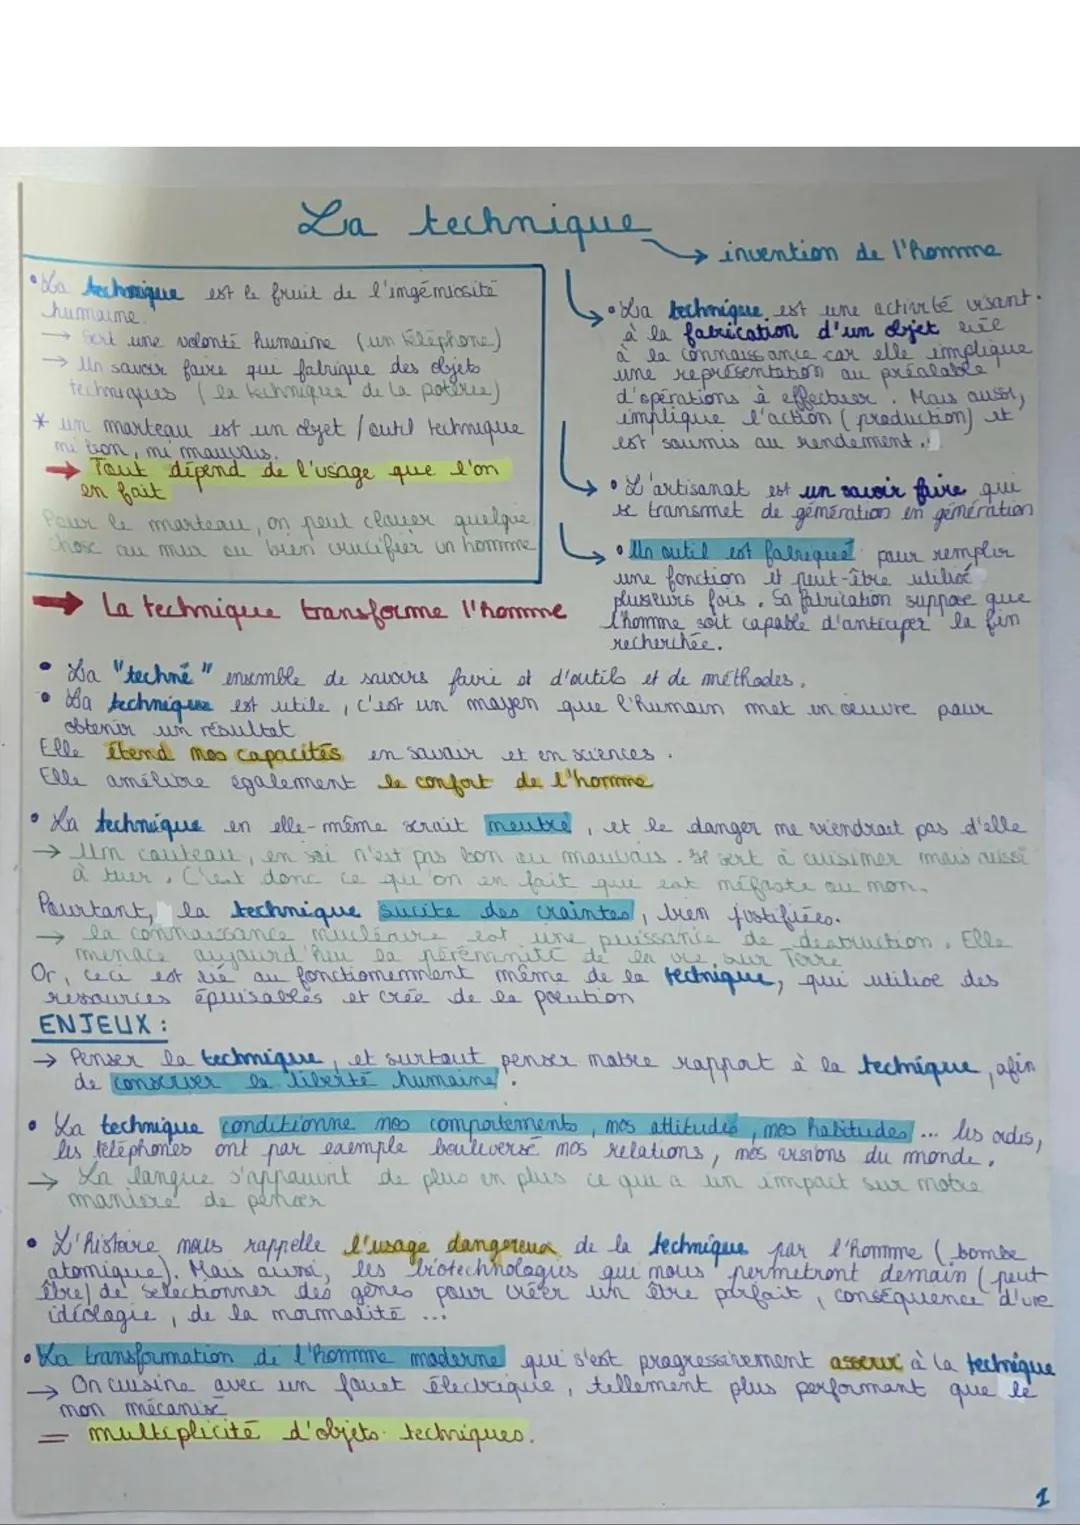 La technique
→ invention de l'homme
• La technique est le fruit de l'ingéniosité
humaine.
→ Sert une volonté humaine (un téléphone)
→ Un savoir faire qui fabrique des objets
techniques (la technique de la poterie)
* un marteau est un objet / outil technique
ni bon, ni mauvais.
→ Tout dépend de l'usage que l'on
en fait
Pour le marteau, on peut clouer quelque
chose au mur ou bien crucifier un homme
• La technique est une activité visant
à la fabrication d'un objet liée
à la connaissance car elle implique
une représentation au préalable
d'opérations à effectuer. Mais aussi,
implique l'action (production) et
est soumis au rendement.
• L'artisanat est un savoir faire qui
se transmet de génération en génération
• Un outil est fabriqué pour remplir
une fonction et peut-être utilisé
plusieurs fois. Sa fabrication suppose que
l'homme soit capable d'anticiper la fin
recherchée.
→ La technique transforme l'homme
• La "techné" ensemble de savoirs faire et d'outils et de méthodes.
• La technique est utile, c'est un moyen que l'humain met en œuvre pour
obtenir un résultat
Elle étend nos capacités en savoir et en sciences.
Elle améliore également le confort de l'homme
• La technique en elle-même serait neutre, et le danger ne viendrait pas d'elle
→ Un couteau, en soi n'est pas bon ou mauvais. Il sert à cuisiner mais aussi
à tuer. C'est donc ce qu'on en fait que est méfaste ou non.
Pourtant, la technique sucite des craintes, bien justifiées.
→ la connaissance nucléaire est une puissance de destruction. Elle
menace aujourd'hui la pérennité de la vie sur Terre
Or, ceci est lié au fonctionnement même de la technique, qui utilise des
ressources épuisables et crée de la polution
ENJEUX :
→ Penser la technique, et surtout penser notre rapport à la technique, afin
de conserver la liberté humaine.
• La technique conditionne nos comportements, nos attitudes, nos habitudes... les ordis,
les téléphones ont par exemple bouleversé nos relations, nos visions du monde.
→ La langue s'appauvrit de plus en plus ce qui a un impact sur notre
manière de penser
• L'histoire nous rappelle l'usage dangereux de la technique par l'homme (bombe
atomique). Mais aussi, les biotechnologies qui nous permetront demain (peut
être) de selectionner des gênes pour créer un être parfait, conséquence d'une
idéologie, de la normalité ...
• La transformation de l'homme moderne qui s'est progressivement asservi à la technique
→ On cuisine avec un fouet électrique, tellement plus performant que le
non mécanisé
= multiplicité d'objets techniques.
1